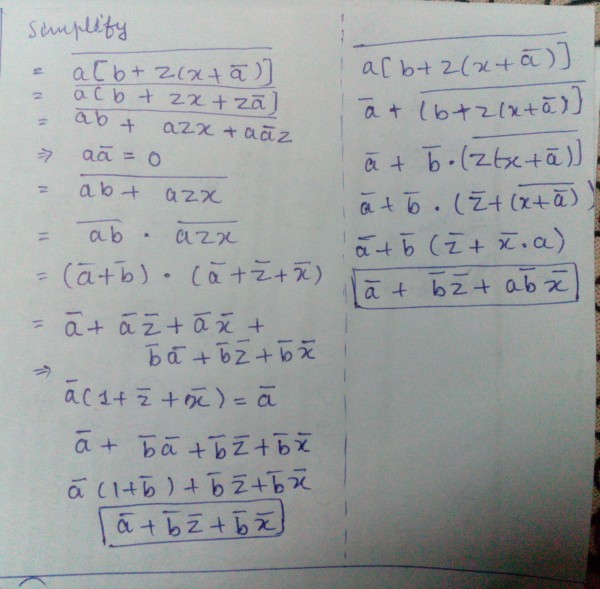 Simplify
= \overline{a[b+z(x+\bar{a})]}
= \overline{a[b+zx+z\bar{a}]}
= \overline{ab+azx+a\bar{a}z}
⇒ a\bar{a} = 0
= \overline{ab+azx}
= \overline{ab} · \overline{azx}
= (\bar{a}+\bar{b}) · (\bar{a}+\bar{z}+\bar{x})
= \bar{a}+\bar{a}\bar{z}+\bar{a}\bar{x}+
\bar{b}\bar{a}+\bar{b}\bar{z}+\bar{b}\bar{x}
⇒
\bar{a}(1+\bar{z}+\bar{x})=\bar{a}
\bar{a}+\bar{b}\bar{a}+\bar{b}\bar{z}+\bar{b}\bar{x}
\bar{a}(1+\bar{b})+\bar{b}\bar{z}+\bar{b}\bar{x}
\bar{a}+\bar{b}\bar{z}+\bar{b}\bar{x}
\overline{a[b+z(x+\bar{a})]}
\bar{a}+\overline{[b+z(x+\bar{a})]}
\bar{a}+\bar{b}·\overline{[z(x+\bar{a})]}
\bar{a}+\bar{b}·(\bar{z}+\overline{(x+\bar{a})})
\bar{a}+\bar{b}(\bar{z}+\bar{x}·a)
\bar{a}+\bar{b}\bar{z}+a\bar{b}\bar{x}